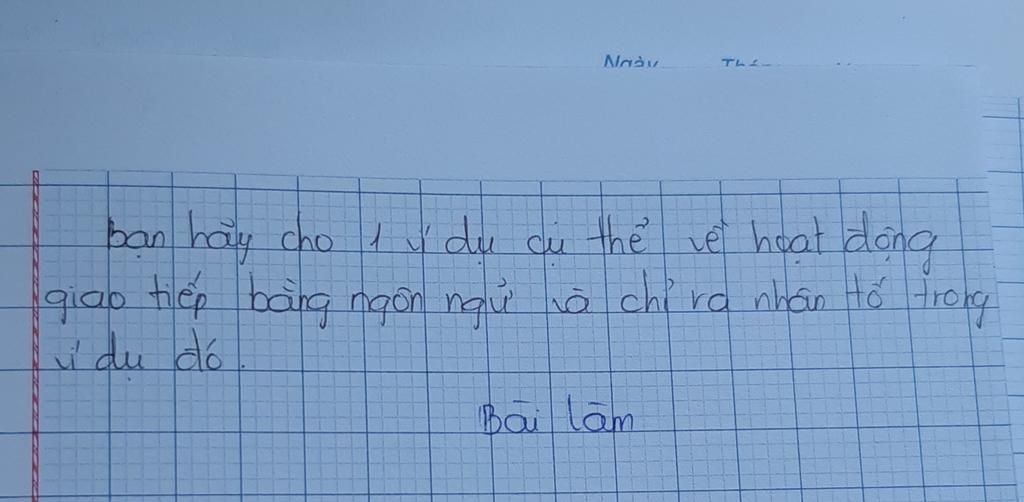 Ngày
bạn hãy cho 1 ví dụ cụ thể về hoạt động
giao tiếp bằng ngôn ngữ và chỉ ra nhân tố trong
ví dụ đó.
Bài làm